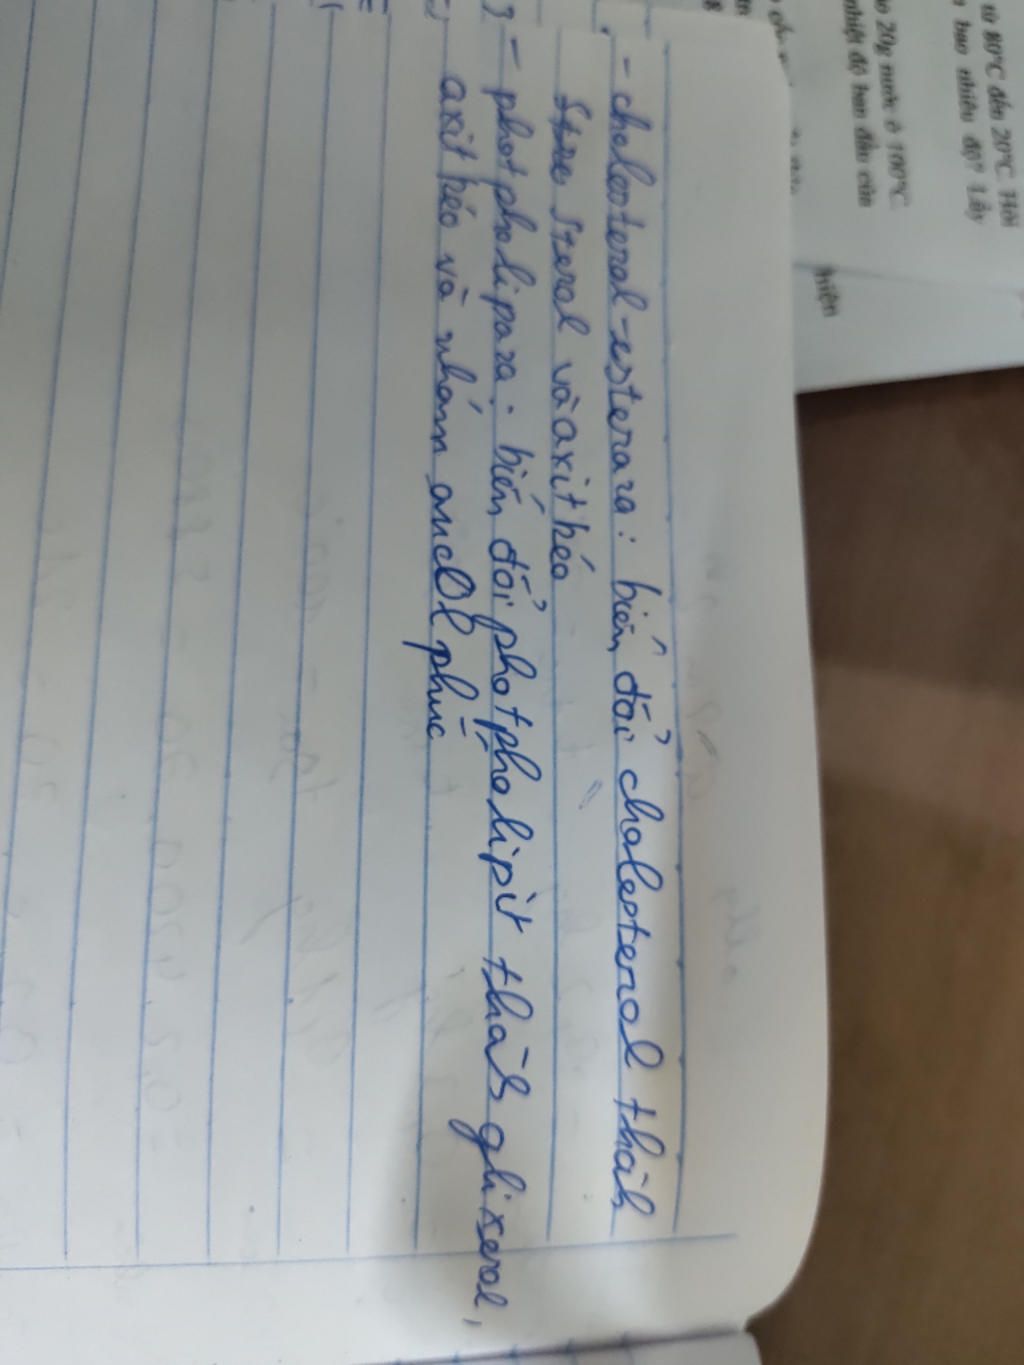 từ 80°C đến 20°C. Hỏi
bao nhiêu độ? Lấy
20g nước ở 100°C.
nhiệt độ ban đầu của
hiện
- cholesterol-esteraza: biến đổi cholesterol thành
sterol và axit béo
- photpholipaza: biến đổi photpholipit thành glixerol,
axit béo và nhóm phức